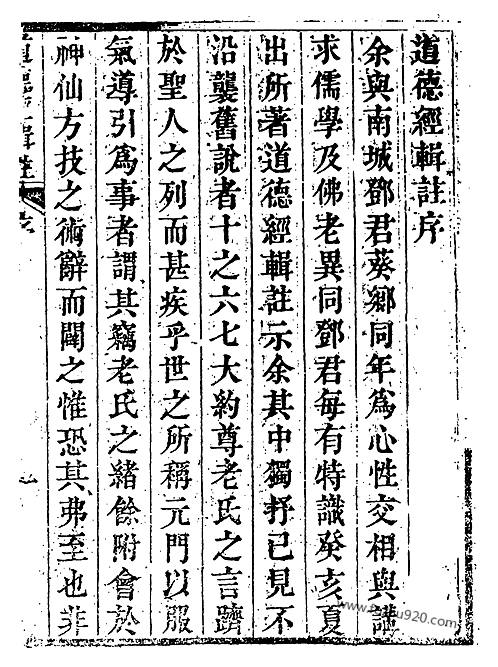 道德經輯註序
余與南城鄧君葵鄉同年爲心性交相與講
求儒學及佛老異同鄧君每有特識癸亥夏
出所著道德經輯註示余其中獨抒已見不
沿襲舊說者十之六七大約尊老氏之言躋
於聖人之列而甚疾乎世之所稱元門以服
氣導引爲事者謂其竊老氏之緒餘附會於
神仙方技之術辭而闢之惟恐其弗至也非